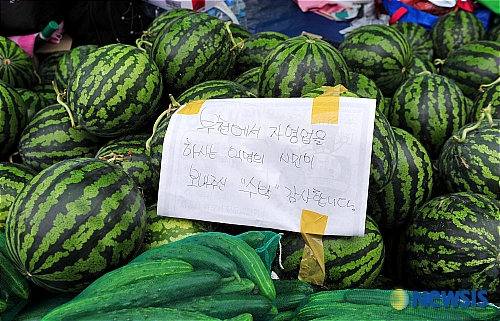 부천에서 자영업을
하시는 익명의 시민이
보내주신 "수박" 감사합니다.
NEWSIS